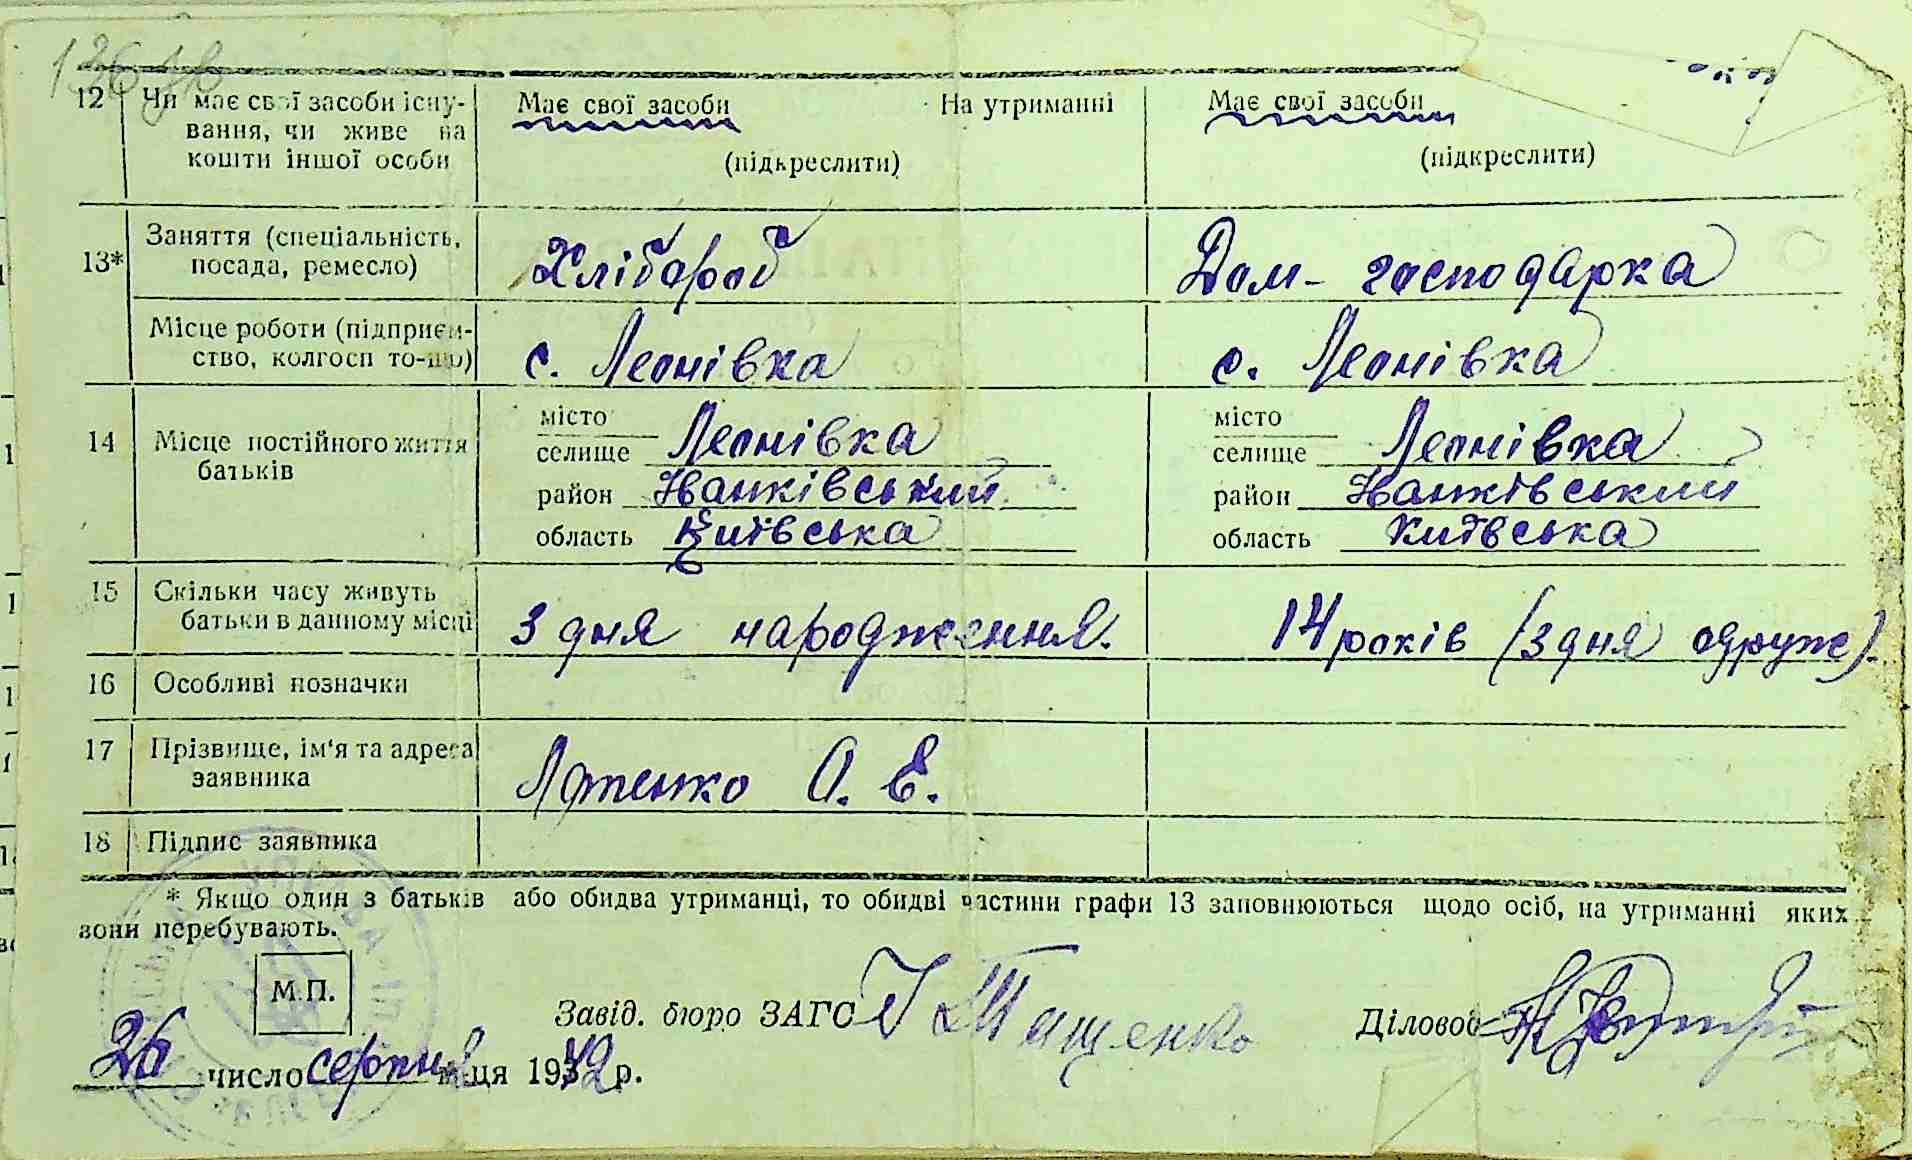 12 Чи має свої засоби існу- Має свої засоби На утриманні Має свої засоби
вання, чи живе на
кошти іншої особи (підкреслити) (підкреслити)
13* Заняття (спеціальність, посада, ремесло) Хлібороб Дом-господарка
Місце роботи (підприєм-
ство, колгосп то-що) с. Леонівка с. Леонівка
14 Місце постійного життя батьків
місто місто
селище Леонівка селище Леонівка
район Іванківський район Іванківський
область Київська область Київська
15 Скільки часу живуть
батьки в данному місці З дня народження. 14 років (з дня одруж).
16 Особливі позначки
17 Прізвище, ім'я та адреса
заявника О. Е.
18 Підпис заявника
* Якщо один з батьків або обидва утриманці, то обидві частини графи 13 заповнюються щодо осіб, на утриманні яких
вони перебувають.
М.П.
Завід. бюро ЗАГС Діловод
26 число серпня м-ця 1942 р.